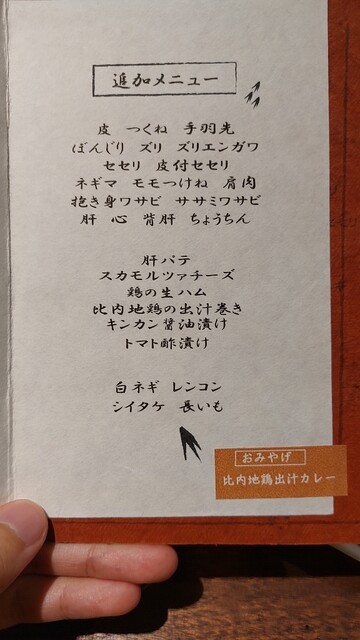 追加メニュー
皮 つくね 手羽先
ぼんじり ズリ ズリエンガワ
セセリ 皮付セセリ
ネギマ モモつけね 肩肉
抱き身ワサビ ササミワサビ
肝 心 背肝 ちょうちん
肝パテ
スカモルツァチーズ
鶏の生ハム
比内地鶏の出汁巻き
キンカン醤油漬け
トマト酢漬け
白ネギ レンコン
シイタケ 長いも
おみやげ
比内地鶏出汁カレー